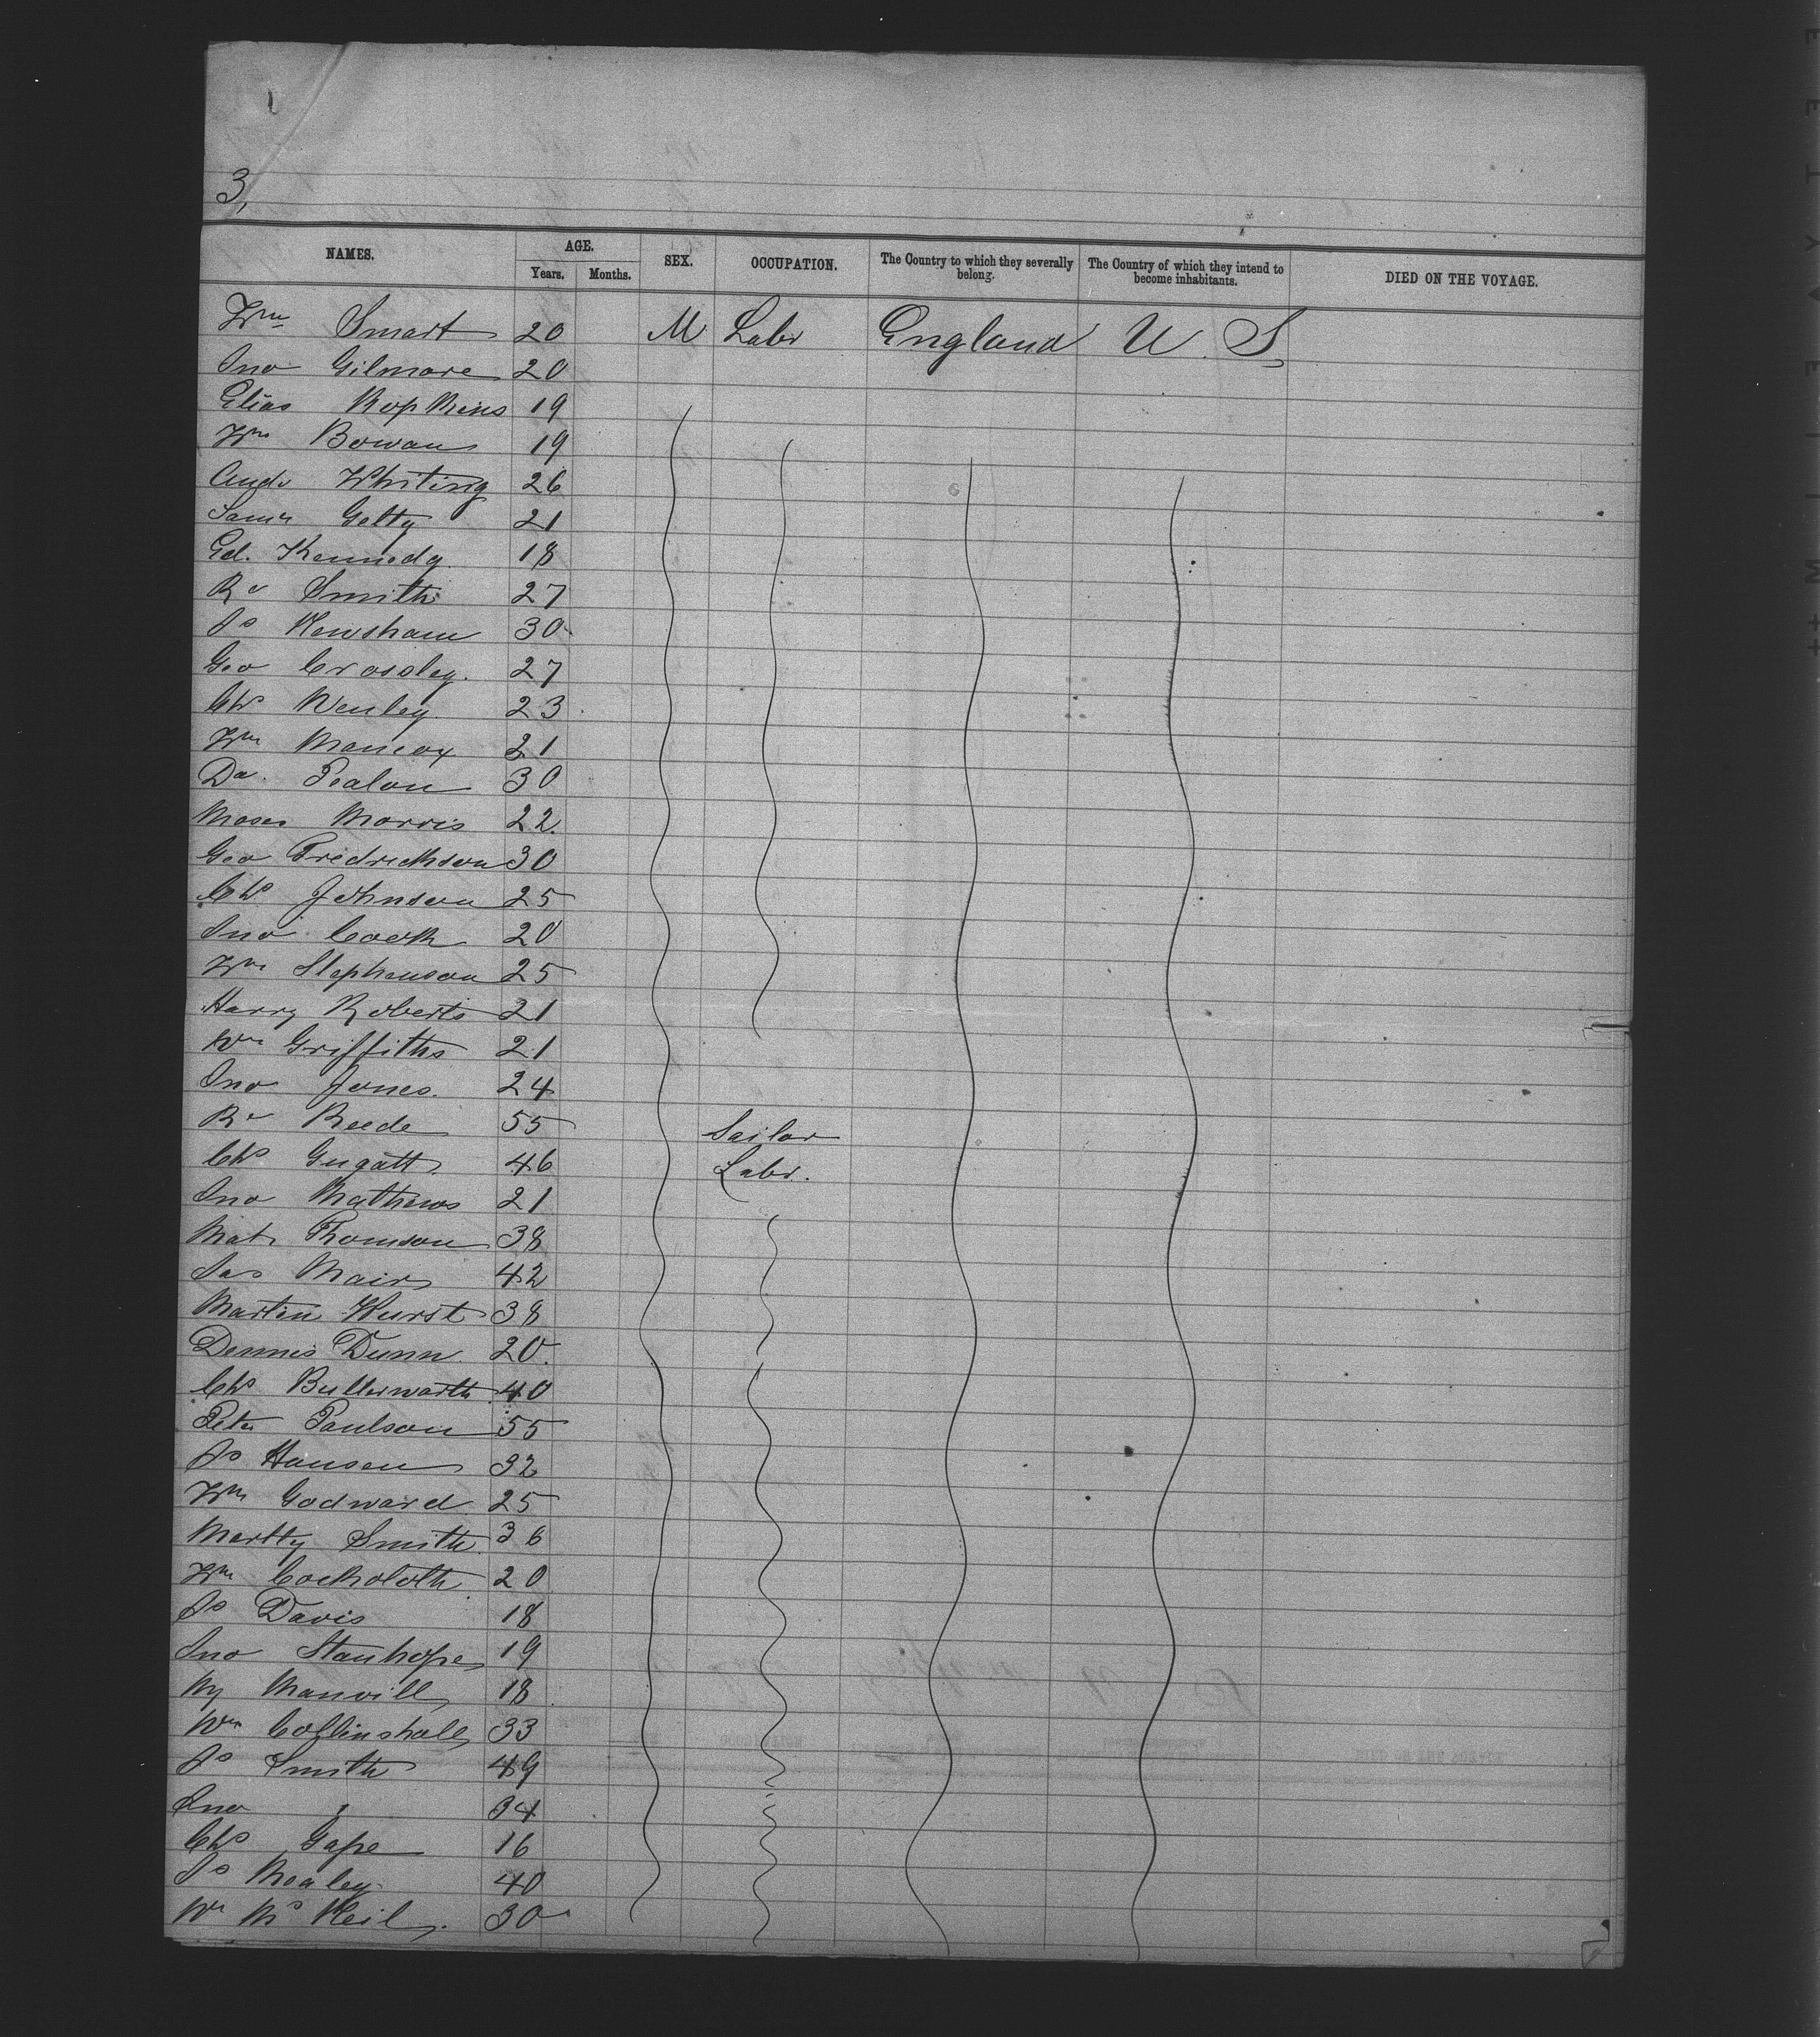 3,
NAMES. AGE. SEX. OCCUPATION. The Country to which they severally belong. The Country of which they intend to become inhabitants. DIED ON THE VOYAGE.
Years. Months.
Wm Smart 20 M Labr England U. S
Jno Gilmore 20
Elias Hopkins 19
Wm Bowan 19
Andr Whiting 26
Saml Getty 21
Ed. Kennedy 18
Rd Smith 27
Js Newsham 30
Geo Crossley. 27
Chs Henley 23
Wm Mancox 21
Da. 30
Moses Morris 22.
Geo Fredrickson 30
Chs Johnson 25
Jno Cook 20
Wm Stephenson 25
Harry Roberts 21
Wm Griffiths 21
Jno Jones. 24
Rd Reede 55 Sailor
Chs Gugatt 46 Labr.
Jno Mathews 21
Mat Thomson 38
Jas Mair 42
Martin Hurst 38
Dennis Dunn 20.
Chs Butterworth 40
Peter Paulson 55
Js Hansen 32
Wm Godward 25
Smith 36
Wm 20
Js Davis 18
Jno Stanhope 19
Hy Manvill 18
Wm 33
Js Smith 49
Jno " 34
Chs Gape 16
Js Mealey 40
Wm Mc Neil. 30